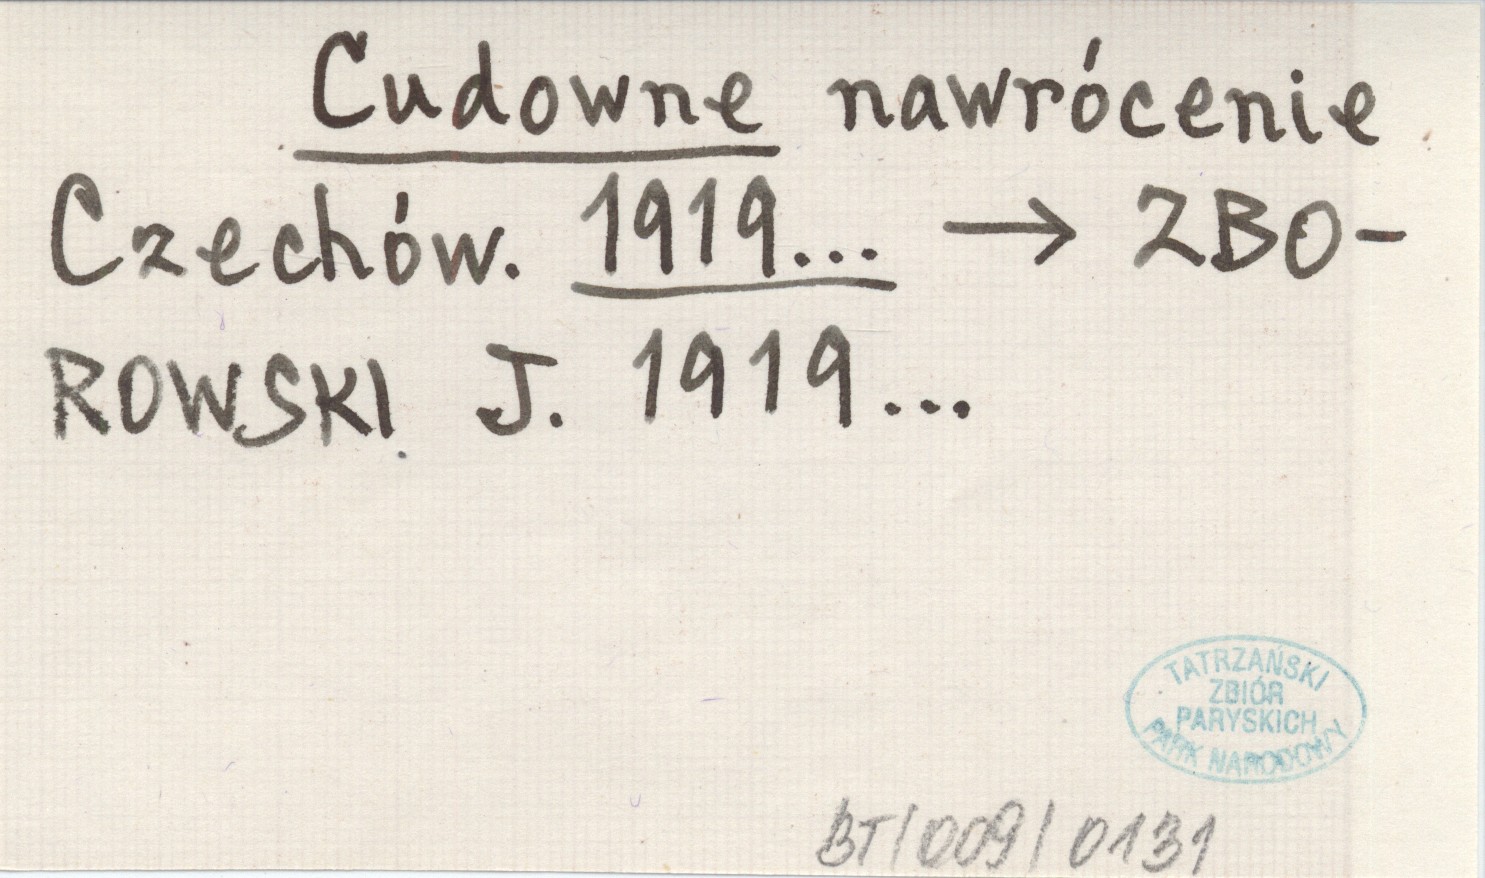 Cudowne nawrócenie
Czechów. 1919... → ZBO-
ROWSKI J. 1919...
TATRZAŃSKI
ZBIÓR
PARYSKICH
PARK NARODOWY
BT/009/0131